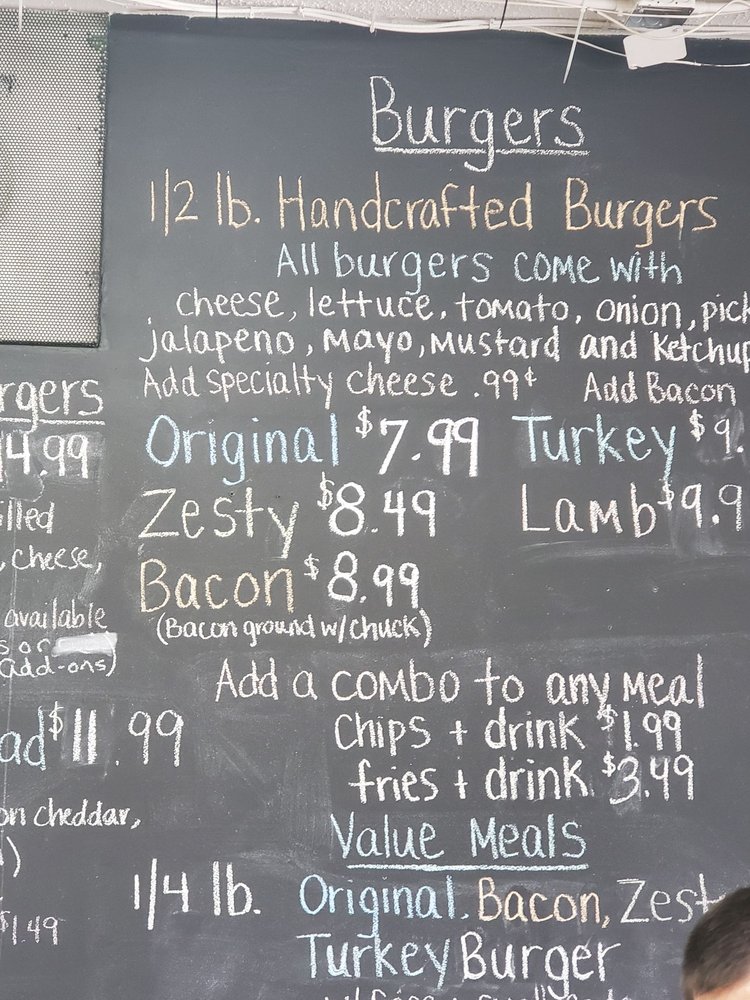 Burgers
1/2 lb. Handcrafted Burgers
All burgers come with
cheese, lettuce, tomato, onion, pick
jalapeno, Mayo, Mustard and Ketchup
Add specialty cheese .99¢ Add Bacon
Original $7.99 Turkey $9.
Zesty $8.49 Lamb $9.9
Bacon $8.99
(Bacon ground w/chuck)
Add a combo to any Meal
Chips + drink $1.99
fries + drink $3.49
Value Meals
1/4 lb. Original, Bacon, Zesty
Turkey Burger
rgers
14.99
illed
, cheese,
available
s or
add-ons)
ad $11.99
on cheddar,
)
$1.49